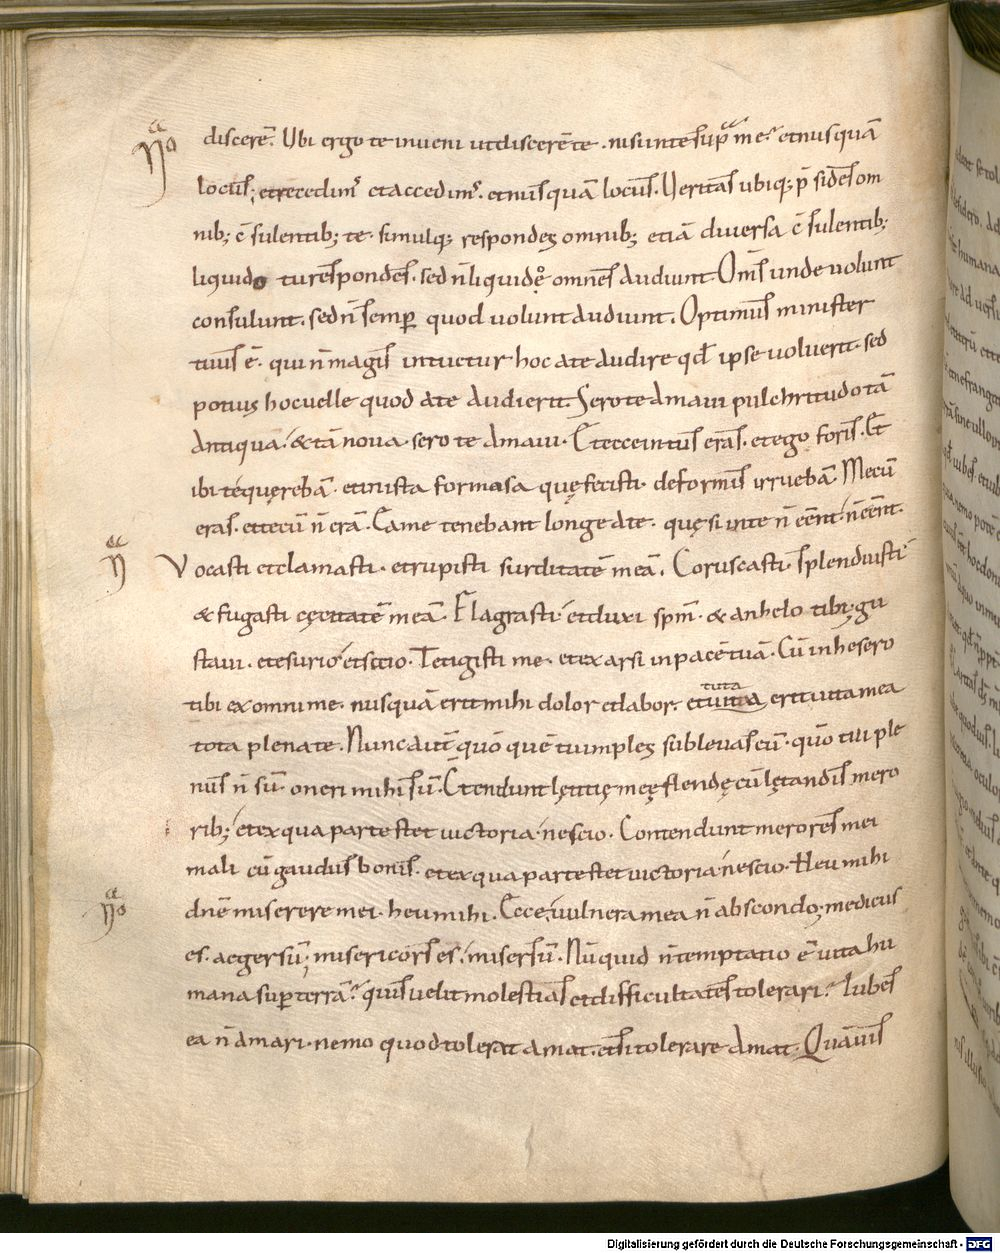 discerē. Ubi ergo te inveni ut discerē te. nisi in te sup̄ me? et nusquā
locus; et recedim᷒ et accedim᷒. et nusquā locus. Veritas ubiq; p̄sides om
nib; c̄sulentib; te. simulq; respondes omnib; etiā diversa c̄sulentib;
liquido tu respondes. sed n̄ liquide om̄es audiunt. Om̄s unde volunt
consulunt. sed n̄ semp̄ quod volunt audiunt. Optimus minister
tuus ē. qui n̄ magis intuetur hoc a te audire qd̄ ipse voluerit. sed
potius hoc velle quod a te audierit. Sero te amavi pulchritudo tā
antiqua. & tā nova. sero te amavi. Et ecce intus eras. et ego foris. Et
ibi te quęrebā. et in ista formosa quę fecisti. deformis irruebā. Mecū
eras. et tecū n̄ erā. Ea me tenebant longe a te. quę si in te n̄ eēnt. n̄ eēnt.
Vocasti et clamasti. et rupisti surditatē meā. Coruscasti. splenduisti
& fugasti cęcitatē meā. Flagrasti. et duxi spm̄. & anhelo tibi. gu
stavi. et esurio et sitio. Tetigisti me. et exarsi in pacē tuā. Cū inhesero
tibi ex omni me. nusquā erit mihi dolor et labor. et viva erit vita mea
tota plena te. Nunc autē quō quē tu imples sublevas eū. quō tui ple
nus n̄ sū. oneri mihi sū. Contendunt lętitię meę flendę cū lętandis mero
rib; et ex qua parte stet victoria nescio. Contendunt merores mei
mali cū gaudiis bonis. et ex qua parte stet victoria nescio. Heu mihi
dn̄e miserere mei. heu mihi. Ecce vulnera mea n̄ abscondo. medicus
es. aeger sū. misericors es. miser sū. Nūquid n̄ temptatio ē vita hu
mana sup̄ terrā? quis velit molestias et difficultates tolerari? Iubes
ea n̄ amari. nemo quod tolerat amat. etsi tolerare amat. Quāvis
Digitalisierung gefördert durch die Deutsche Forschungsgemeinschaft - DFG